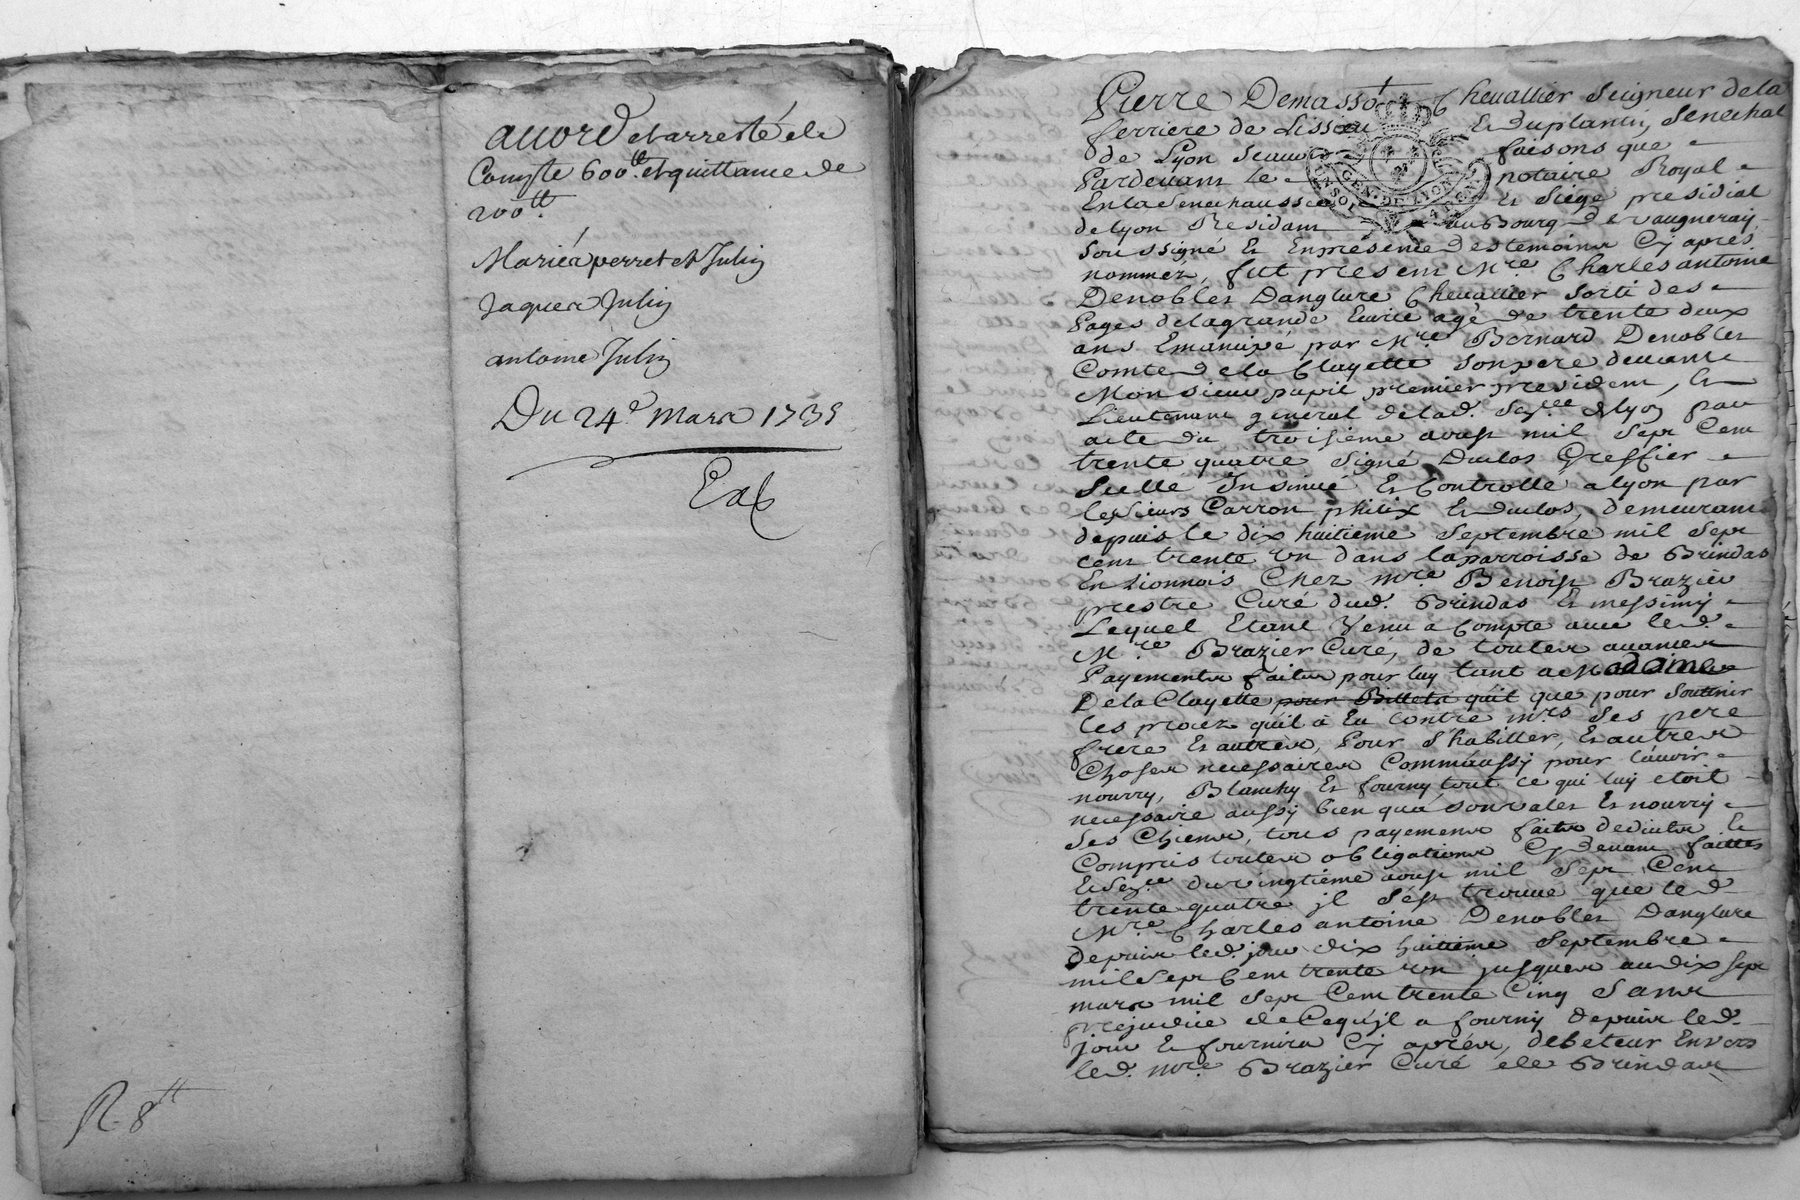 accord et arresté de
Compte 600ᵗᵗ et quittance de
200ᵗᵗ
Mariés perret et Julin
Jaques Julin
antoine Julin
Du 24ᵉ Mars 1735
R. 8ᵗᵗ
Pierre Demassot Chevallier Seigneur de la
ferriere de Lissieu Et duplantin, Senechal
de Lyon Scavoir faisons que
Pardevant le notaire Royal
En la Senechaussee Et Siege presidial
de lyon Residant au Bourg de vaugneray
Soussigné Et En présence des temoins Cy apres
nommez, fut present Mʳᵉ Charles antoine
Denobles Danglure Chevallier Sorti des
Pages de la grande Ecurie agé de trente deux
ans Emancipé par Mʳᵉ Bernard Denobles
Comte de la Clayette Son pere devant
Monsieur pupil premier president, Et
Lieutenant général de lad. Senᶜᵉᵉ de lyon par
acte du troisieme aoust mil Sept Cent
trente quatre Signé Duclos Greffier
Scellé Insinué Et Controllé a lyon par
les Sieurs Carron philix Et duclos, demeurant
depuis le dix huitieme Septembre mil Sept
cent trente un dans la parroisse de Brindas
En Lionnois Chez Mʳᵉ Benoist Brazier
prestre Curé dud. Brindas Et messimy
Lequel Etant Venu a Compte avec led.
Mʳᵉ Brazier Curé, de toutes avances
Payements faits pour luy tant a Madame
De la Clayette pour Billets quil que pour Soutenir
les procez quil a Eu contre mʳˢ Ses pere
frere Et autres, Pour S'habiller, Et autres
Choses necessaires Comm'aussy pour l'avoir
nourry, Blanchy Et fourny tout ce qui luy etoit
necessaire aussy bien qua son valet Et nourry
Ses Chiens, tous payemens faits deduits Et
Compris toutes obligations Cy devant faittes
du vingtieme aoust mil Sept Cent
trente quatre il S'est trouvé que led.
Mʳᵉ Charles antoine Denobles Danglure
depuis led. jour dix huitieme Septembre
mil Sept Cent trente un jusques au dix Sept
mars mil Sept Cent trente Cinq Sans
prejudice de Ce qu'jl a fourny depuis led.
jour Et fournira Cy aprés, debeteur Envers
led. mʳᵉ Brazier Curé de Brindas